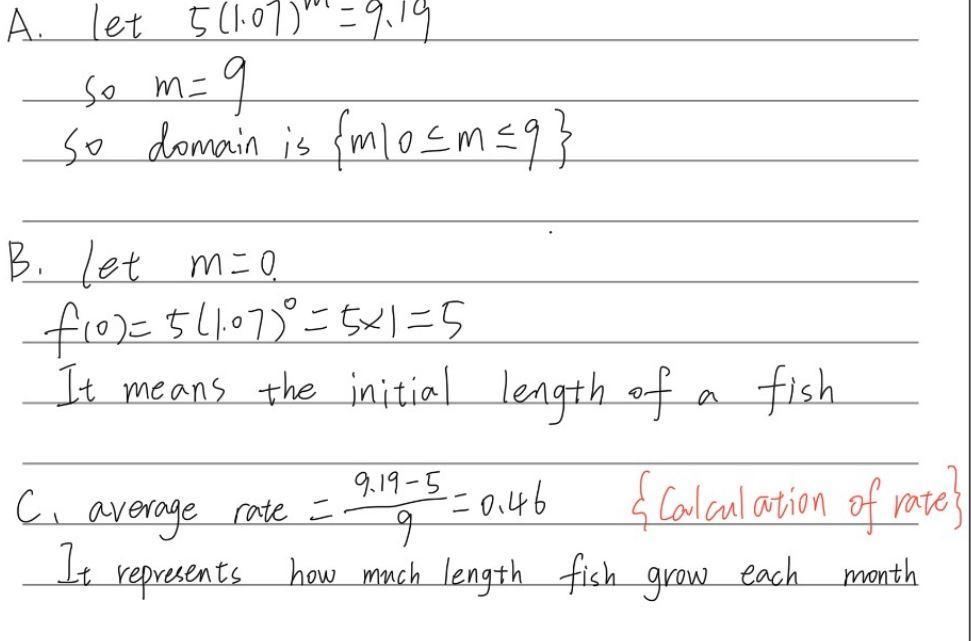 A. let 5(1.07)^m = 9.19
so m = 9
so domain is {m|0 ≤ m ≤ 9}
B. let m = 0.
f(0) = 5(1.07)^0 = 5×1 = 5
It means the initial length of a fish
C. average rate = (9.19-5)/9 = 0.46 {Calculation of rate}
It represents how much length fish grow each month